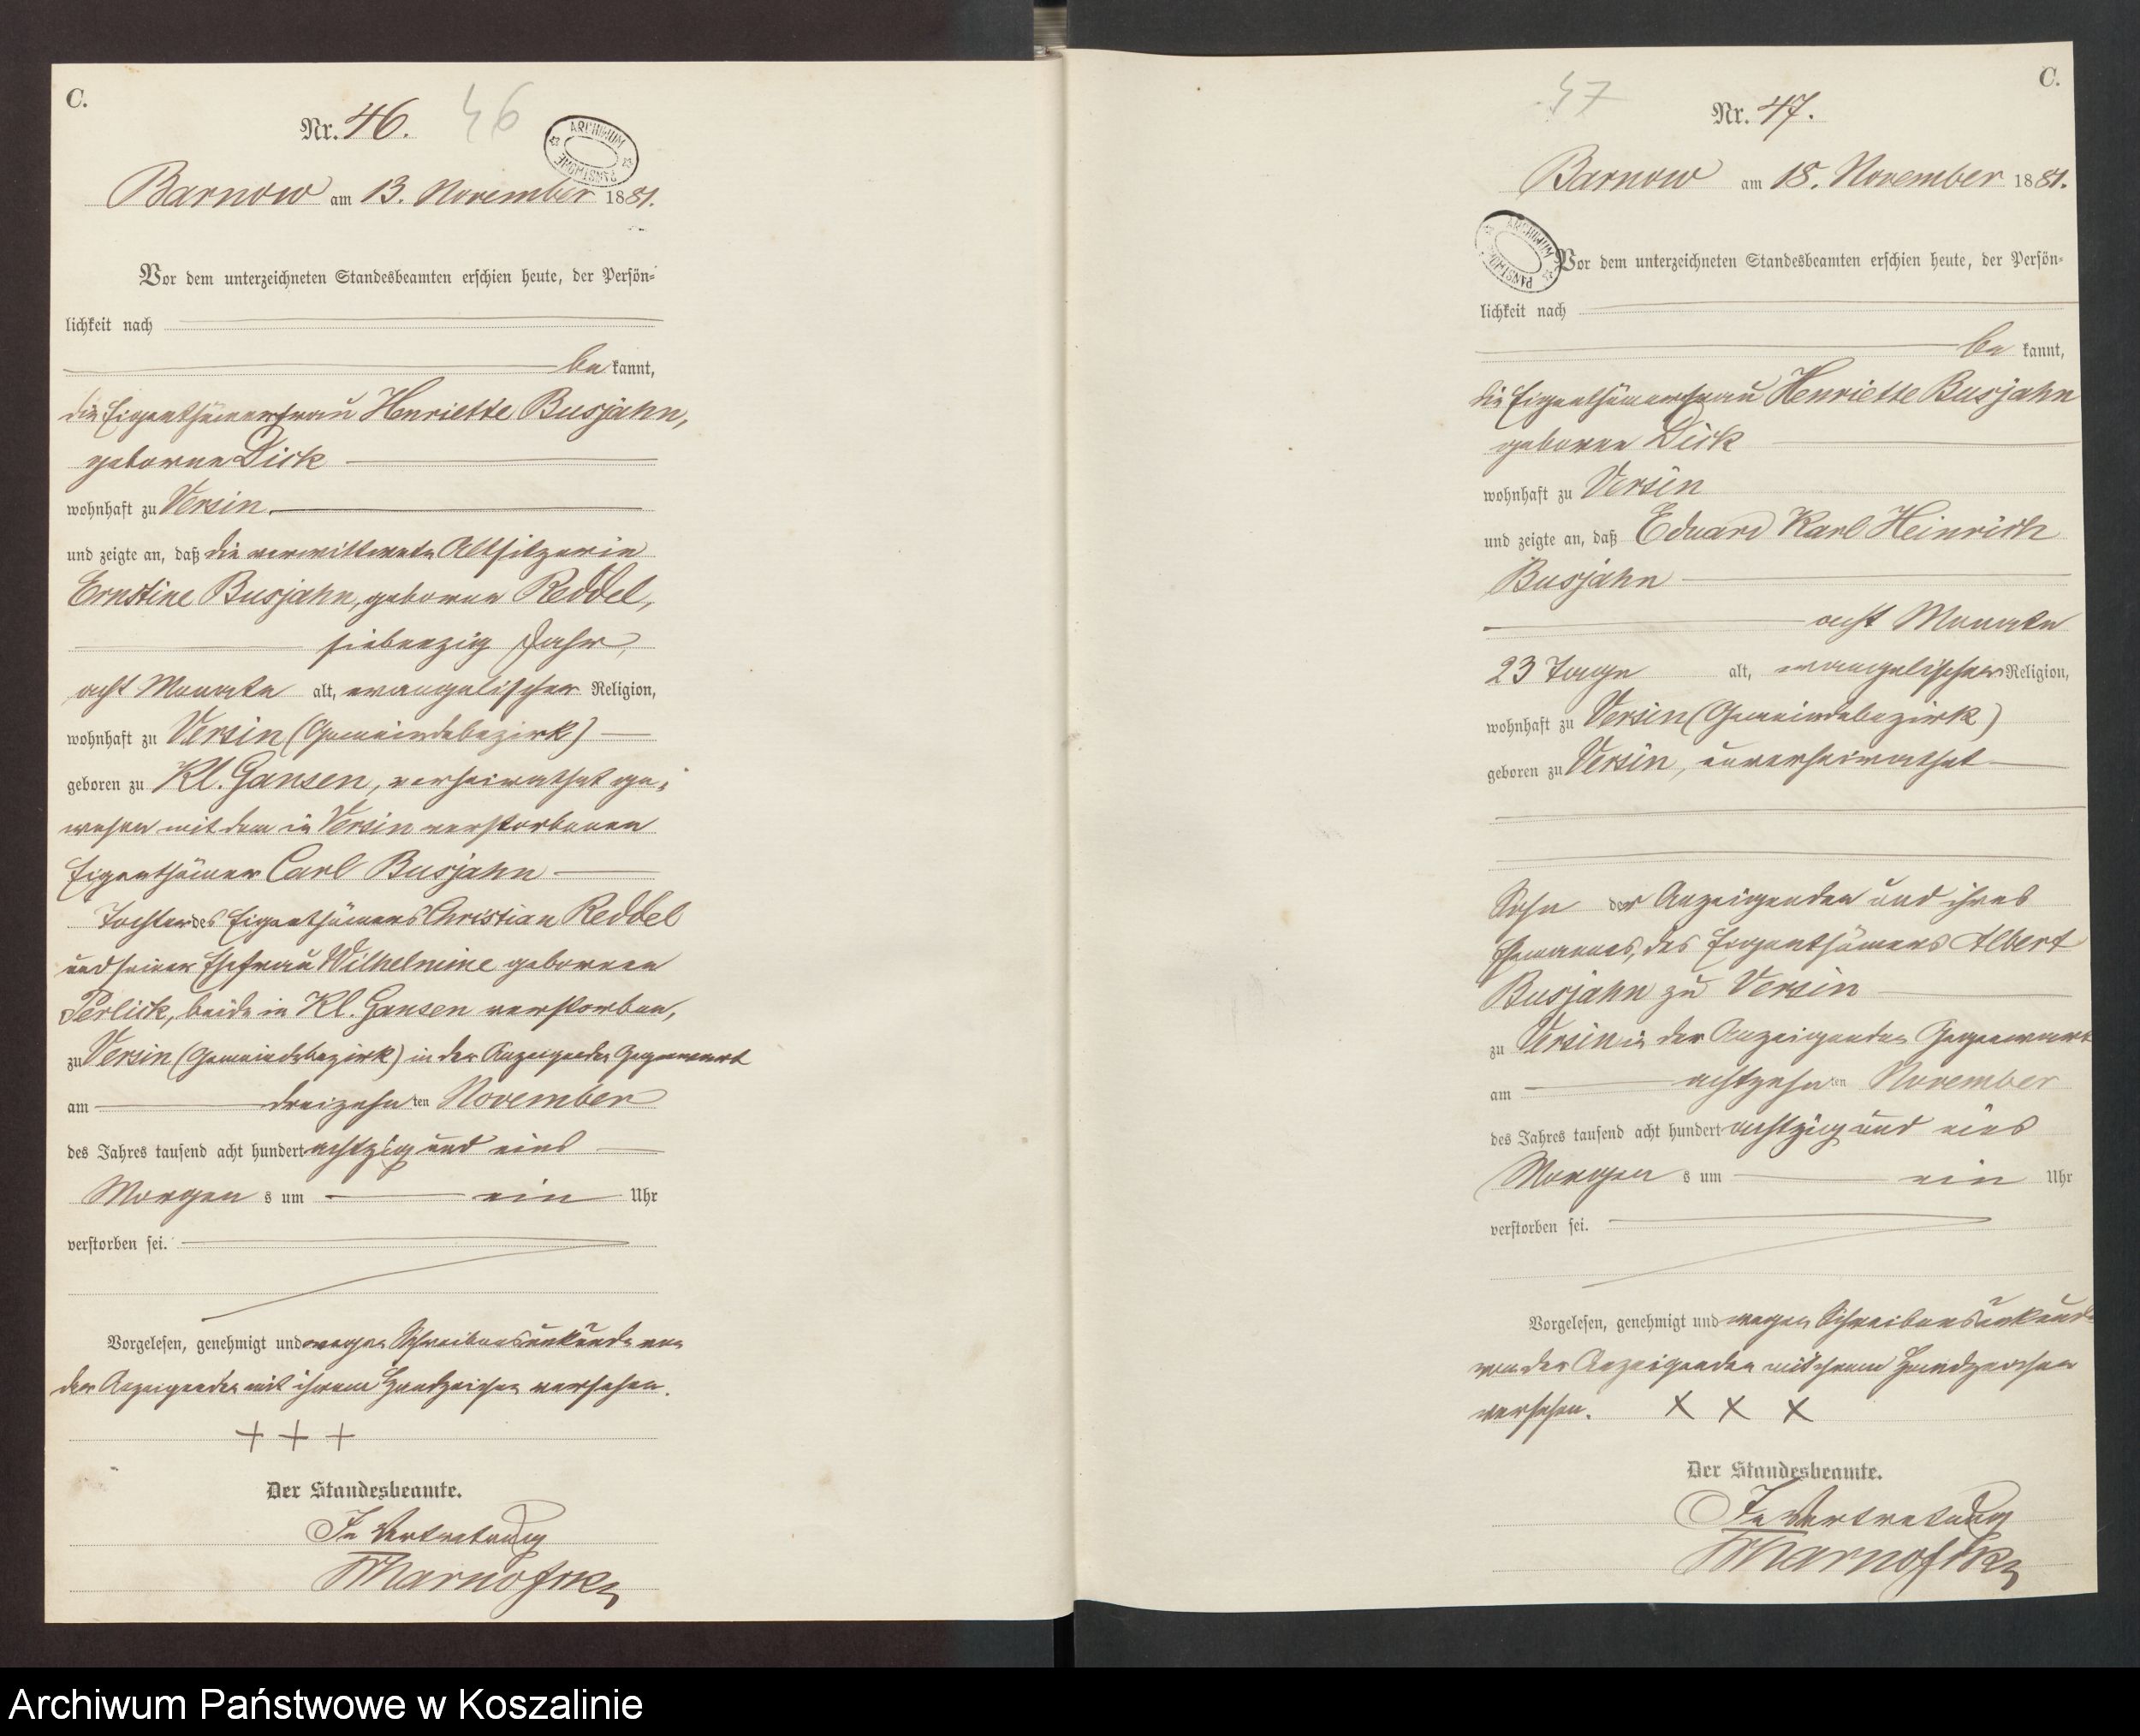 C.
Nr. 46.
46
ARCHIWUM PAŃSTWOWE
Barnow am 13. November 1881.
Vor dem unterzeichneten Standesbeamten erschien heute, der Persön-
lichkeit nach
be kannt,
die Eigenthümerfrau Henriette Busjahn,
geborne Dick
wohnhaft zu Versin
und zeigte an, daß die verwittwete Altsitzerin
Ernstine Busjahn, geborne Reddel,
siebenzig Jahr,
acht Monate alt, evangelischer Religion,
wohnhaft zu Versin (Gemeindebezirk)
geboren zu Kl. Gansen, verheirathet ge-
wesen mit dem in Versin verstorbenen
Eigenthümer Carl Busjahn
Tochter des Eigenthümers Christian Reddel
und seiner Ehefrau Wilhelmine gebornen
Perlick, beide in Kl. Gansen verstorben,
zu Versin (Gemeindebezirk) in der Anzeigenden Gegenwart
am dreizehn ten November
des Jahres tausend acht hundert achtzig und eins
Morgen s um ein Uhr
verstorben sei.
Vorgelesen, genehmigt und wegen Schreibensunkunde von
der Anzeigenden mit ihrem Handzeichen versehen.
+ + +
Der Standesbeamte.
In Vertretung
C.
47
Nr. 47.
Barnow am 18. November 1881.
ARCHIWUM PAŃSTWOWE
Vor dem unterzeichneten Standesbeamten erschien heute, der Persön-
lichkeit nach
be kannt,
die Eigenthümerfrau Henriette Busjahn
geborne Dick
wohnhaft zu Versin
und zeigte an, daß Eduard Karl Heinrich
Busjahn
acht Monate
23 Tage alt, evangelischer Religion,
wohnhaft zu Versin (Gemeindebezirk)
geboren zu Versin, unverheirathet
Sohn der Anzeigenden und ihres
Ehemannes, des Eigenthümers Albert
Busjahn zu Versin
zu Versin in der Anzeigenden Gegenwart
am achtzehn ten November
des Jahres tausend acht hundert achtzig und eins
Morgen s um ein Uhr
verstorben sei.
Vorgelesen, genehmigt und wegen Schreibensunkunde
von der Anzeigenden mit ihrem Handzeichen
versehen. x x x
Der Standesbeamte.
In Vertretung
Archiwum Państwowe w Koszalinie